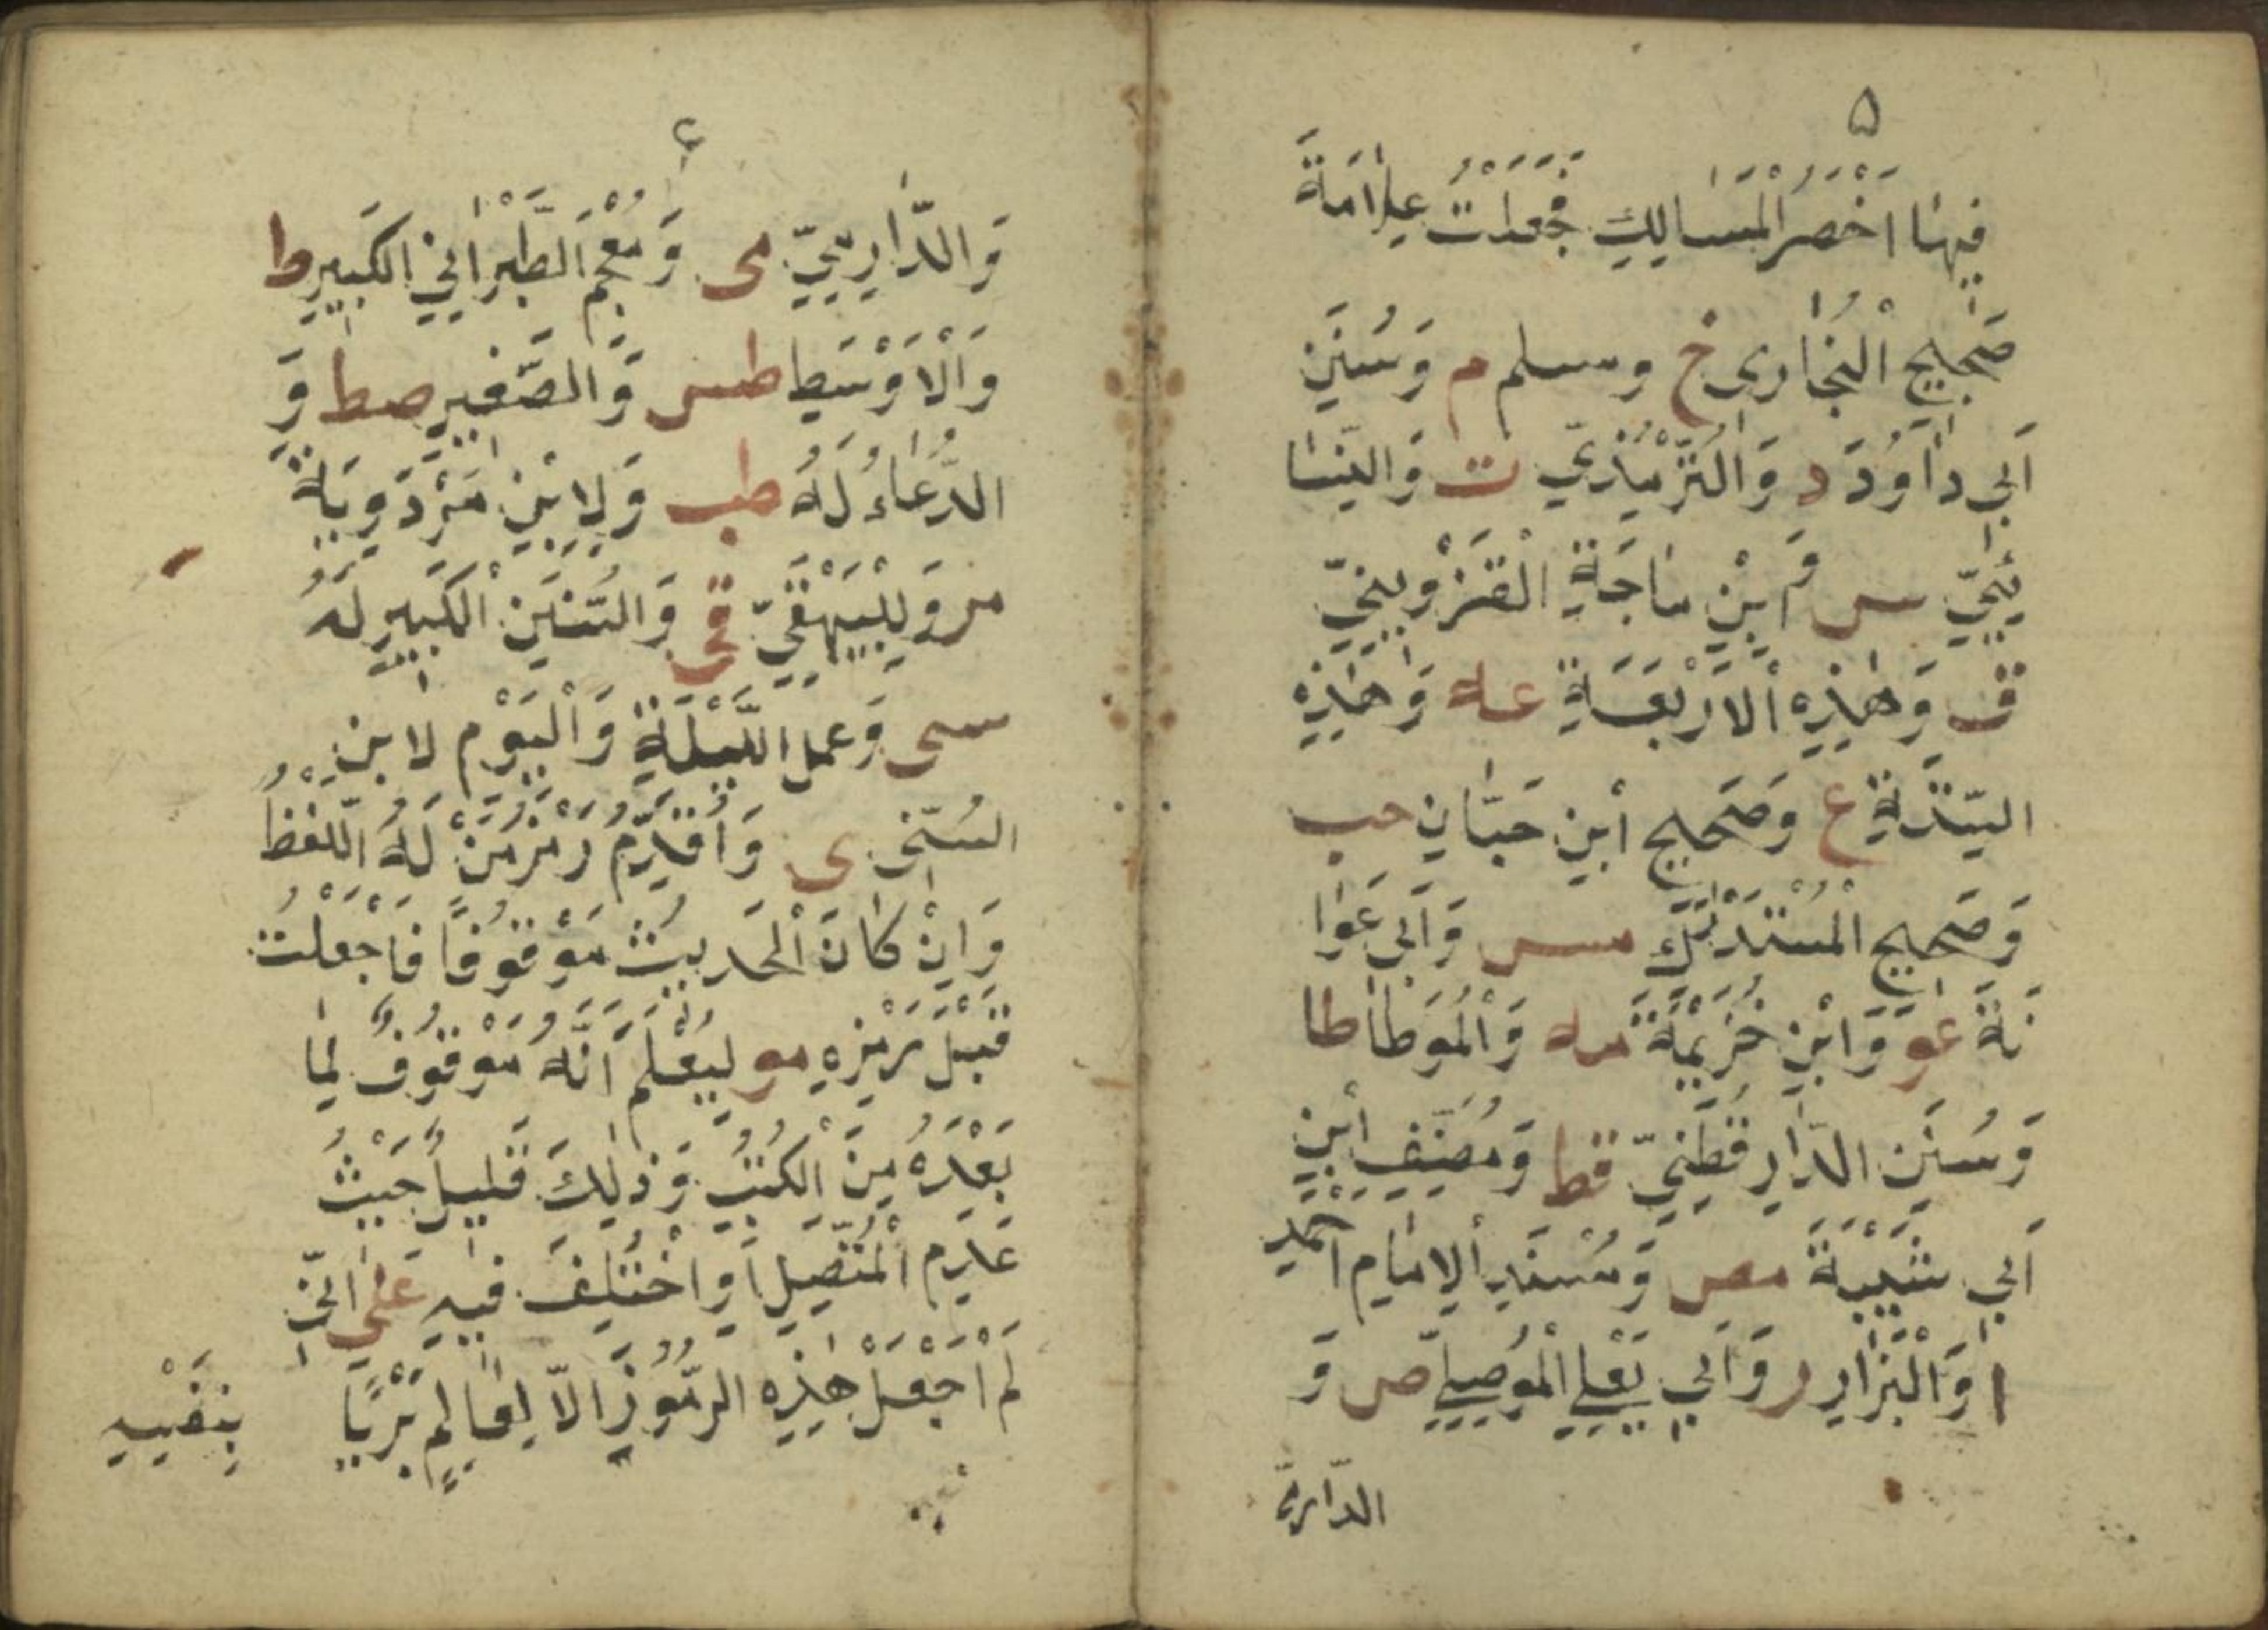 ۵
فِيهَا اَخْصَرَ الْمَسَالِكِ فَجَعَلْتُ عَلَامَةَ
صَحِيحِ الْبُخَارِى خ ومسلم م وَسُنَنِ
اَبِى دَاوُدَ د وَالتِّرْمِذِيِّ ت وَالنَّسَا
ئِيِّ س وَ ابْنِ مَاجَةِ الْقَزْوِينِيِّ
ق وَهٰذِهِ الْاَرْبَعَةِ عه وَهٰذِهِ
السِّتَّةِ ع وَصَحِيحِ ابْنِ حَبَّانِ حب
وَصَحِيحِ الْمُسْتَدْرَكِ مس وَاَبِى عَوَا
نَةَ عَو وَابْنِ خُزَيْمَةَ مه وَالْمُوَطَّا طا
وَسُنَنِ الدَّارِقُطْنِيِّ قط وَمُصَنَّفِ ابْنِ
اَبِى شَيْبَةَ مص وَمُسْنَدِ الْاِمَامِ احمد
ا وَالْبَزَّارِ ر وَاَبِى يَعْلِى الْمُوصِلِيّ ص وَ
الدّارمّ
۶
وَالدَّارِمِيِّ مى وَمُعْجَمِ الطَّبْرَانِيِ الكَبِيرِ ط
وَالْاَوْسَطِ طس وَالصَّغِيرِ صط وَ
الدُّعَاءُ لَهُ طب وَلِابْنِ مَرْدَوِيَةَ
مر وَلِلْبَيْهَقِيِّ قى وَالسُّنَنِ الْكَبِيرِ لَهُ
سنى وَعمل اللَّيْلَةِ وَالْيَوْمِ لابن
السُنّى ى وَاُقَدِّمُ رَمْزَ مَنْ لَهُ اللَّفْظُ
وَاِنْ كَانَ الْحَدِيثُ مَوْقُوفًا فَاَجْعَلْتُ
قَبْلَ رَمْزِهِ مو لِيُعْلَمَ اَنَّهُ مَوْقُوفٌ لِمَا
بَعْدَهُ مِنَ الْكُتُبِ وَذٰلِكَ قَلِيلٌ حَيْثُ
عَدِمَ الْمُتَّصِلُ اَوِ اخْتُلِفَ فِيهِ عَلىٰ اَنِّى
لَمْ اَجْعَلْ هٰذِهِ الرُّمُوزَ اِلَّا لِعَالِمٍ يَرْبَا
بِنَفْسِهِ